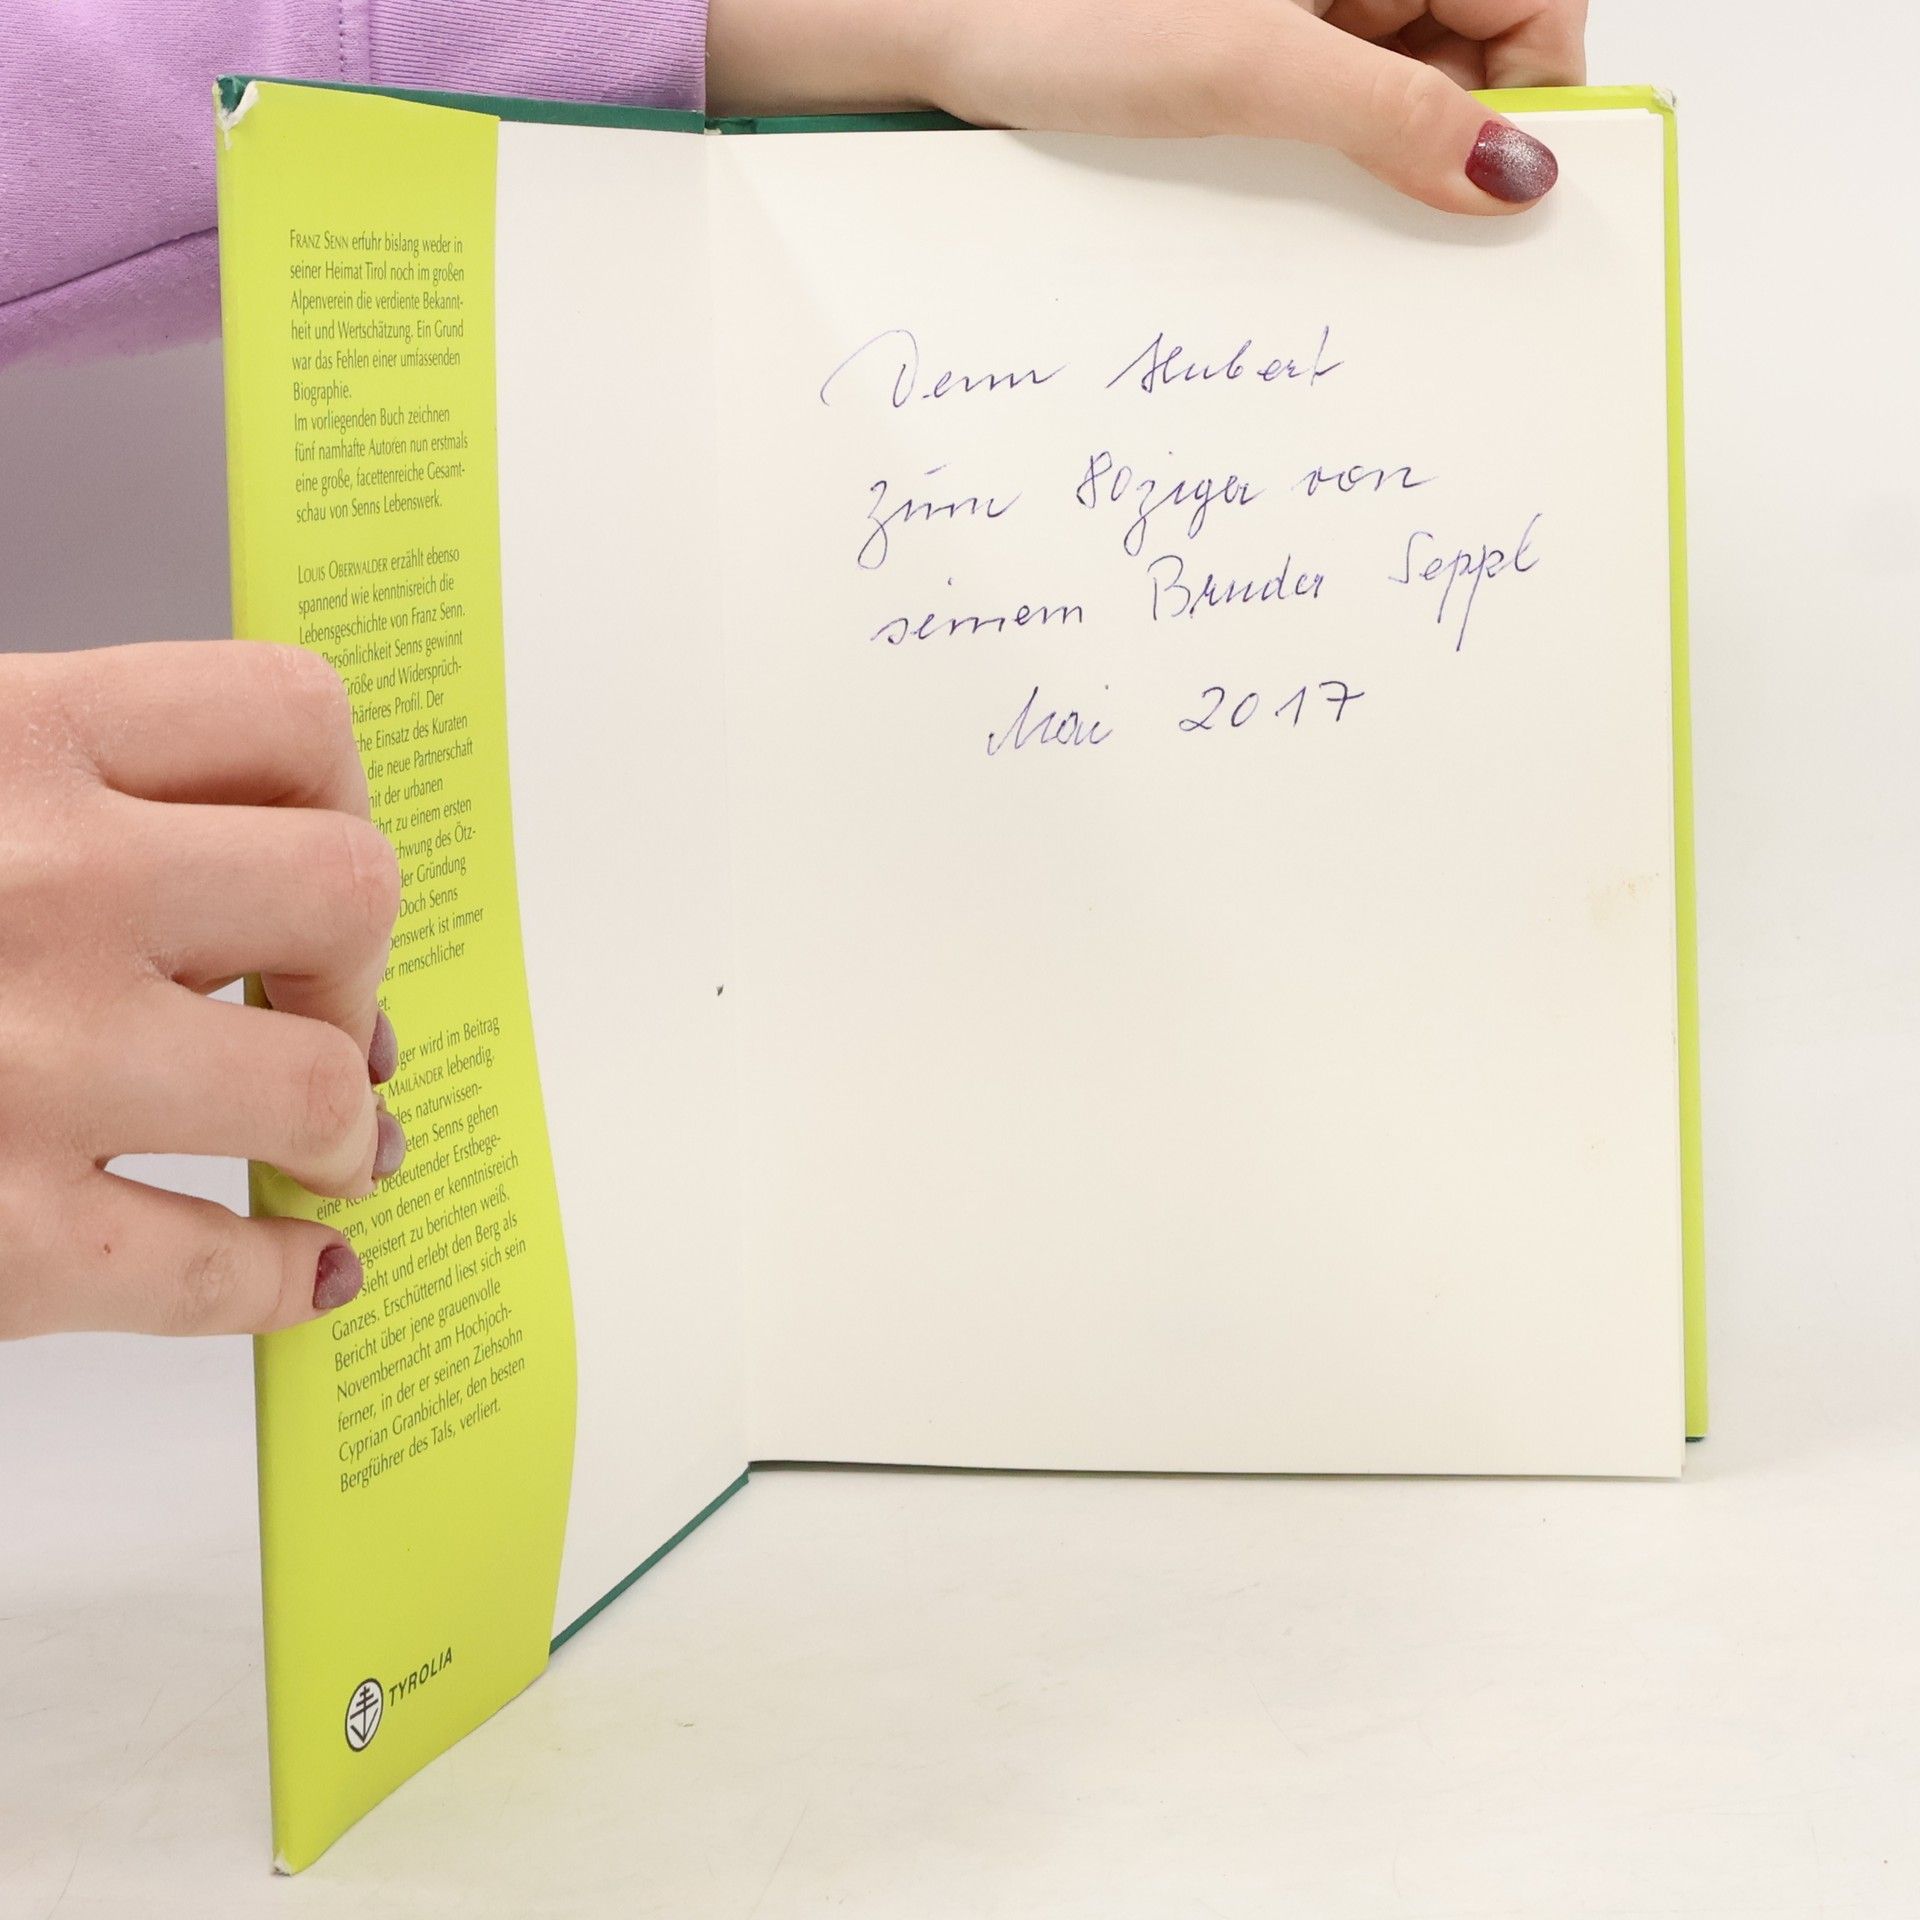 FRANZ SENN erfuhr bislang weder in
seiner Heimat Tirol noch im großen
Alpenverein die verdiente Bekannt-
heit und Wertschätzung. Ein Grund
war das Fehlen einer umfassenden
Biographie.
Im vorliegenden Buch zeichnen
fünf namhafte Autoren nun erstmals
eine große, facettenreiche Gesamt-
schau von Senns Lebenswerk.
LOUIS OBERWALDER erzählt ebenso
spannend wie kenntnisreich die
Lebensgeschichte von Franz Senn.
Persönlichkeit Senns gewinnt
Größe und Widersprüch-
härferes Profil. Der
che Einsatz des Kuraten
die neue Partnerschaft
mit der urbanen
ührt zu einem ersten
chwung des Ötz-
der Gründung
Doch Senns
benswerk ist immer
menschlicher
et.
ger wird im Beitrag
MAILÄNDER lebendig.
des naturwissen-
eten Senns gehen
eine Reihe bedeutender Erstbege-
gen, von denen er kenntnisreich
egeistert zu berichten weiß.
sieht und erlebt den Berg als
Ganzes. Erschütternd liest sich sein
Bericht über jene grauenvolle
Novembernacht am Hochjoch-
ferner, in der er seinen Ziehsohn
Cyprian Granbichler, den besten
Bergführer des Tals, verliert.
TYROLIA
Dem Hubert
zum 80ziger von
seinem Bruder Seppl
Mai 2017